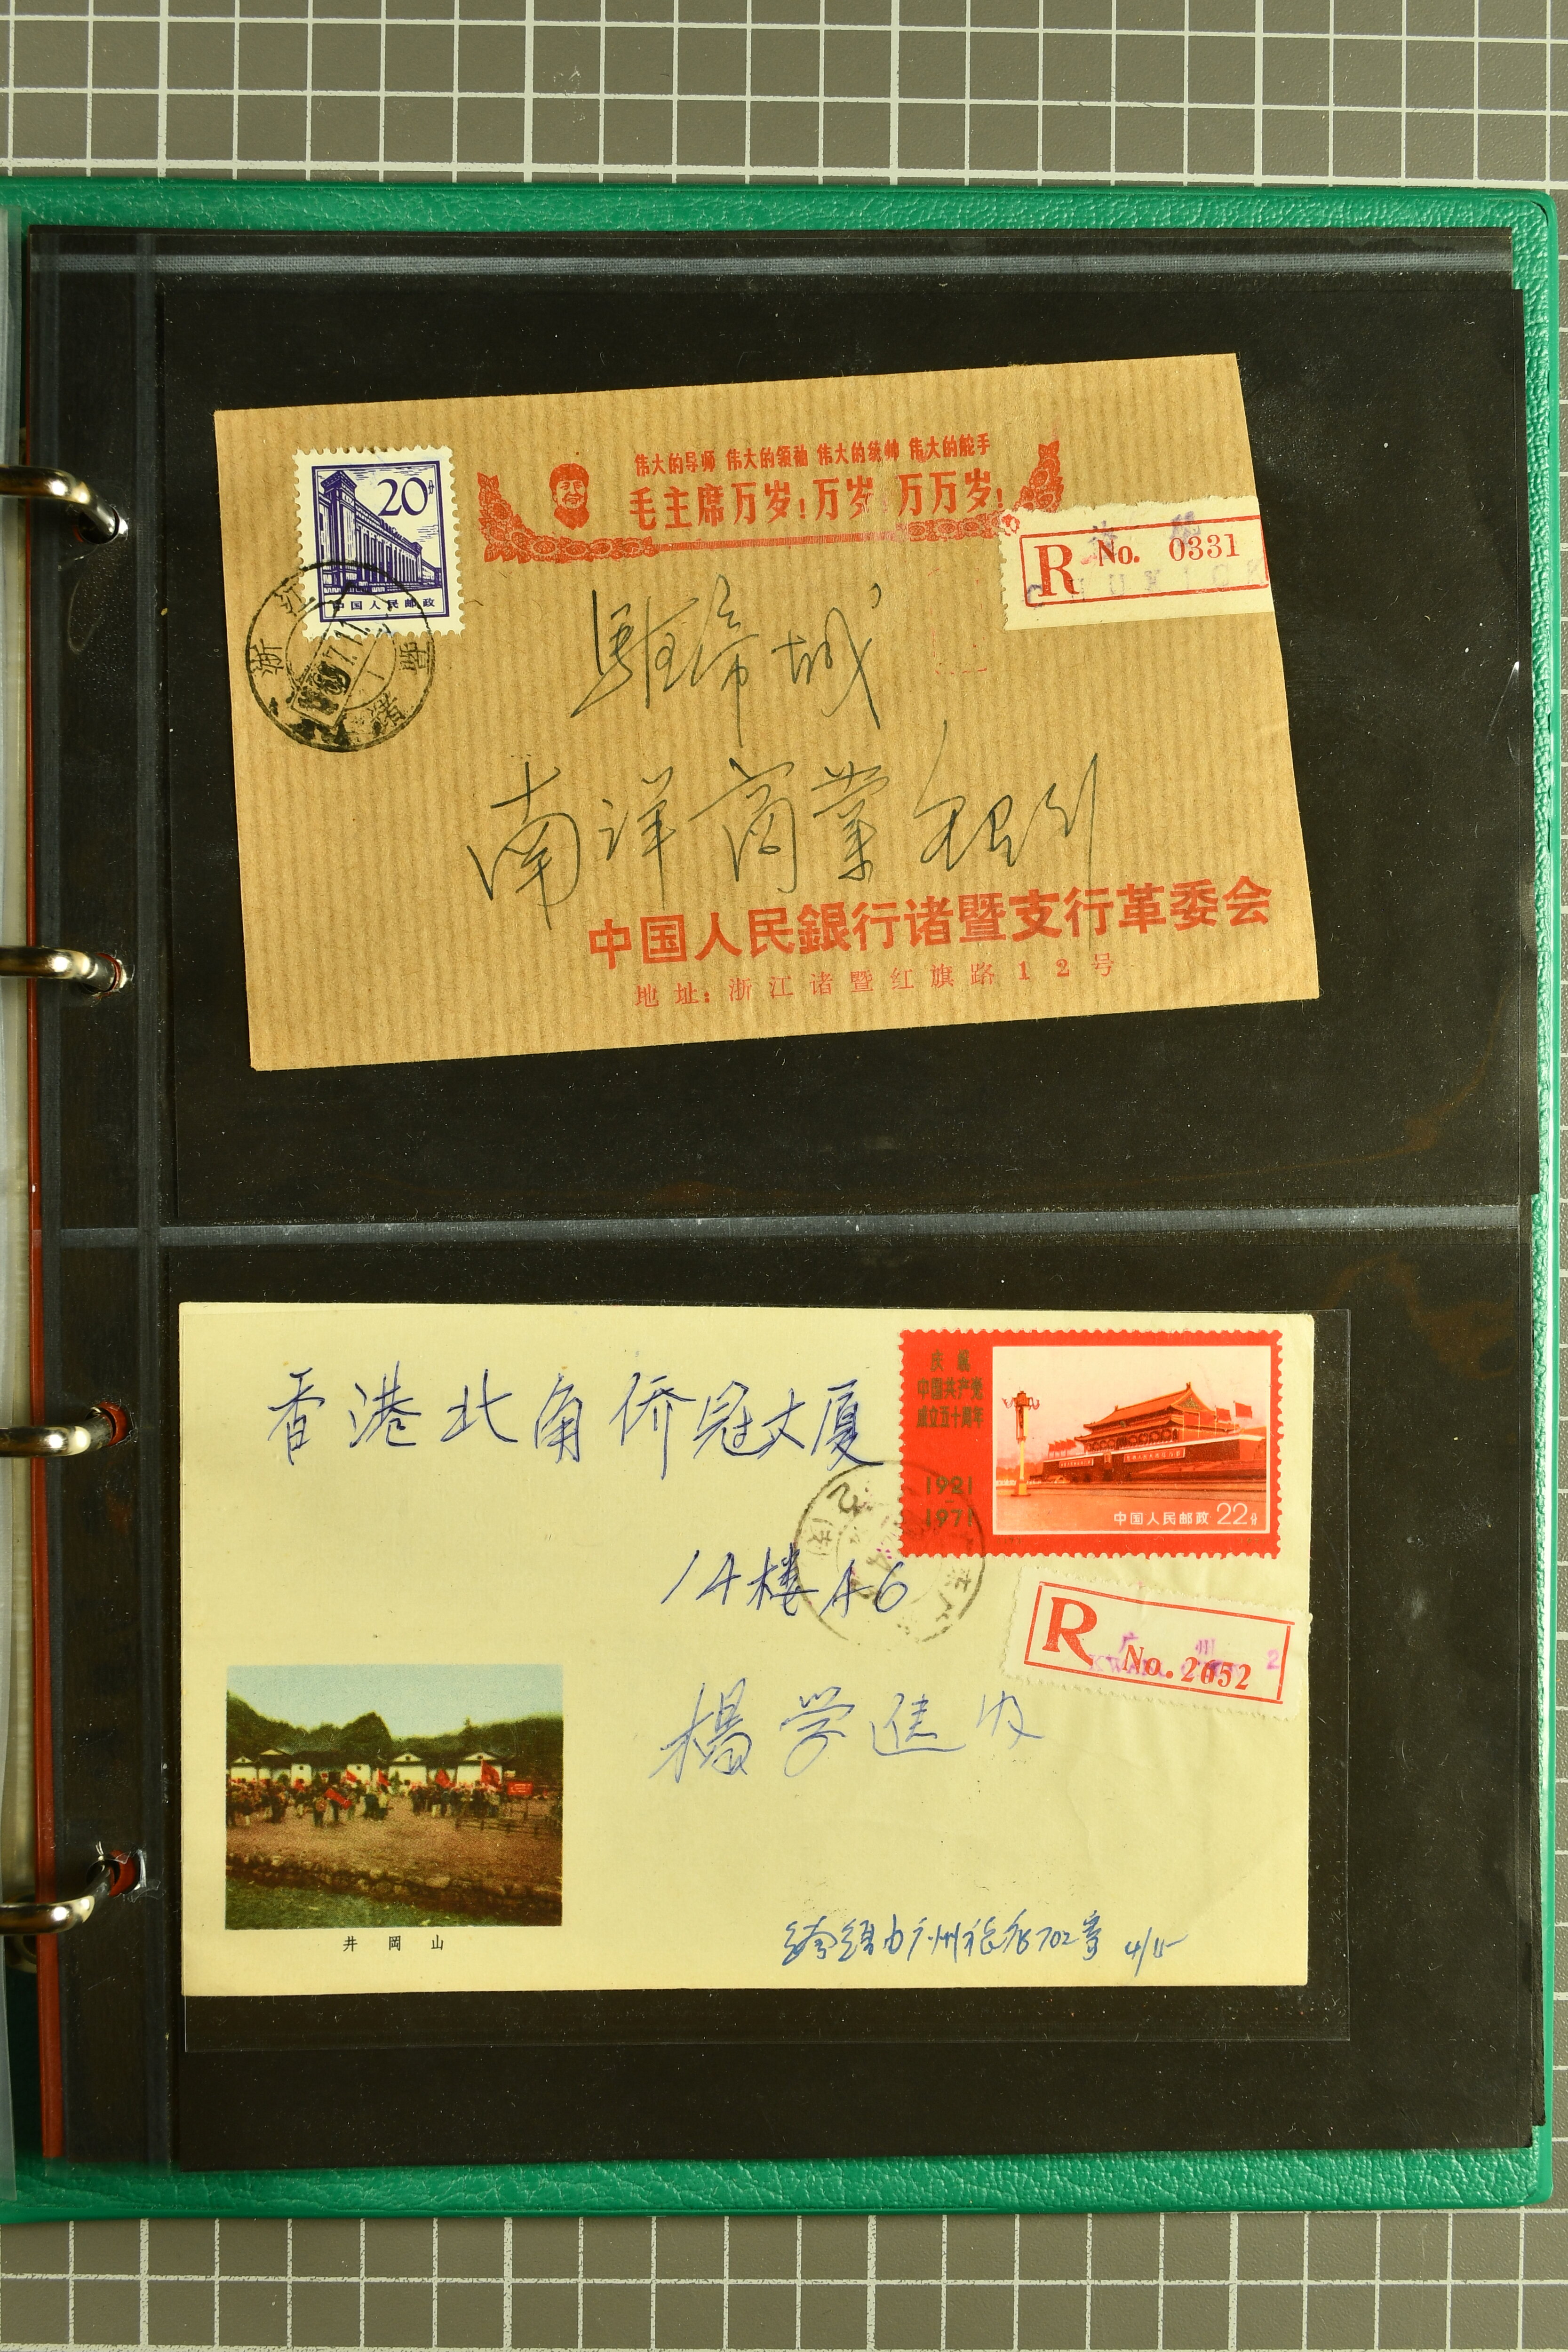 20分
中国人民邮政
伟大的导师 伟大的领袖 伟大的统帅 伟大的舵手
毛主席万岁!万岁!万万岁!
R No. 0331
浙江
南洋商業银行
中国人民銀行诸暨支行革委会
地址:浙江诸暨红旗路12号
香港北角侨冠大厦
庆祝
中国共产党
成立五十周年
1921
1971
中国人民邮政 22分
14楼A6
R No. 2052
广州 2
楊学
井岡山
广州
702
4/15